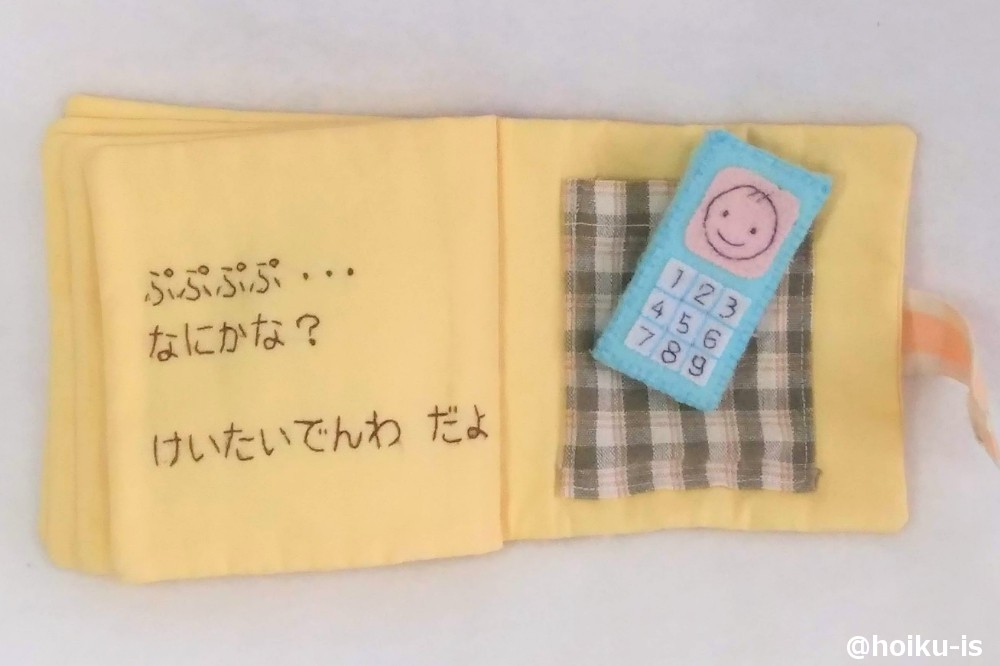 ぷぷぷぷ・・・
なにかな？
けいたいでんわ だよ
1 2 3
4 5 6
7 8 9
@hoiku-is